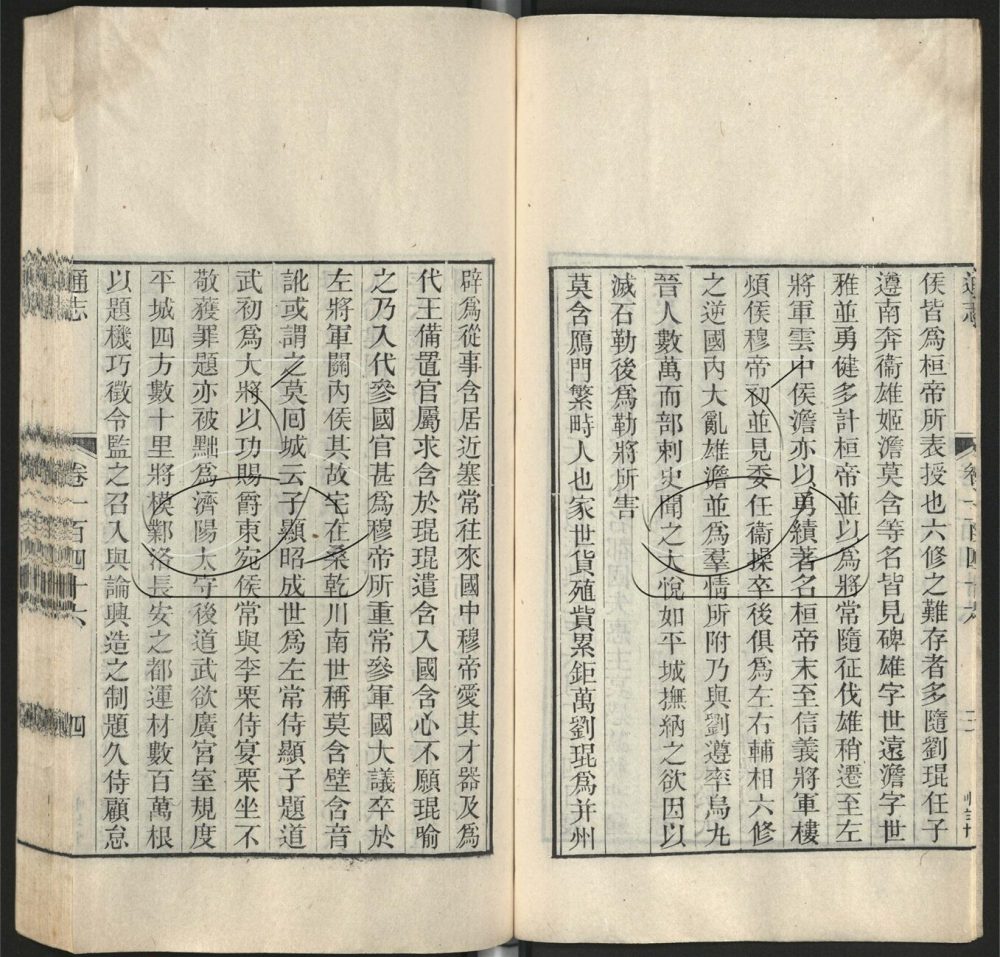 侯皆爲桓帝所表授也六修之難存者多隨劉琨任子
遵南奔衞雄姬澹莫含等名皆見碑雄字世遠澹字世
雅並勇健多計桓帝並以爲將常隨征伐雄稍遷至左
將軍雲中侯澹亦以勇績著名桓帝末至信義將軍樓
煩侯穆帝初並見委任衞操卒後俱爲左右輔相六修
之逆國內大亂雄澹並爲羣情所附乃與劉遵率烏九
晉人數萬而部刺史聞之大悅如平城撫納之欲因以
滅石勒後爲勒將所害
莫含鴈門繁畤人也家世貨殖貲累鉅萬劉琨爲并州
辟爲從事含居近塞常往來國中穆帝愛其才器及爲
代王備置官屬求含於琨琨遣含入國含心不願琨喻
之乃入代參國官甚爲穆帝所重常參軍國大議卒於
左將軍關內侯其故宅在桑乾川南世稱莫含壁含音
訛或謂之莫囘城云子顯昭成世爲左常侍顯子題道
武初爲大將以功賜爵東宛侯常與李栗侍宴栗坐不
敬獲罪題亦被黜爲濟陽太守後道武欲廣宮室規度
平城四方數十里將模鄴洛長安之都運材數百萬根
以題機巧徵令監之召入與論興造之制題久侍顧怠
通志 卷一百四十六 四